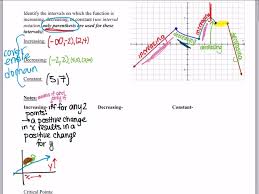 Identify the intervals on which the function is
increasing, decreasing, or constant (use interval
notation, only parentheses are used for
these intervals).
Increasing: (-∞,-2),(2,4)
Decreasing: (-2,2)
Constant: (5,7)
can't
end
domain
Notes:
Increasing- iff for any 2 Decreasing- Constant-
points:
→ a positive change
in x results in a
positive change
for y
x
y
increasing
decreasing
increasing
constant
decreasing
Critical Points: